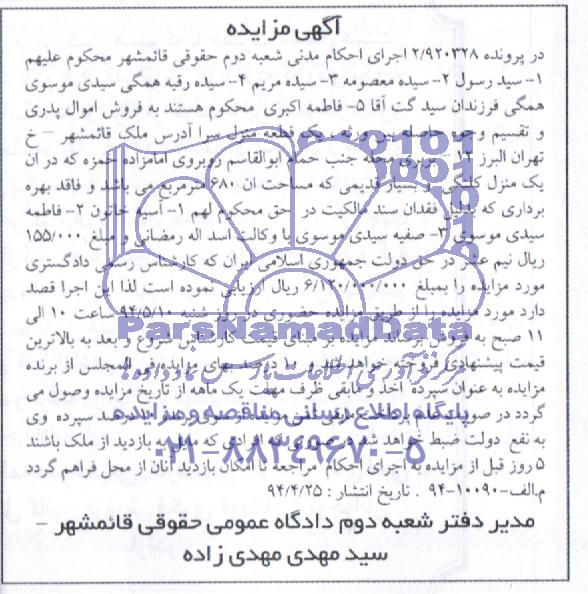 آگهی مزایده
در پرونده ۲/۹۲۰۳۲۸ اجرای احکام مدنی شعبه دوم حقوقی قائمشهر محکوم علیهم
۱- سید رسول ۲- سیده معصومه ۳- سیده مریم ۴- سیده رقیه همگی سیدی موسوی
همگی فرزندان سید گت آقا ۵- فاطمه اکبری محکوم هستند به فروش اموال پدری
و تقسیم وجوه حاصله بین ورثه ، یک قطعه منزل سرا آدرس ملک قائمشهر – خ
تهران البرز ۱۲ – محله جنب حمام ابوالقاسم روبروی امامزاده حمزه که در ان
یک منزل کلنگی و بسیار قدیمی که مساحت ان ۶۸۰ مترمربع می باشد و فاقد بهره
برداری که بدلیل فقدان سند مالکیت در حق محکوم لهم ۱- آسیه خاتون ۲- فاطمه
سیدی موسوی ۳- صفیه سیدی موسوی با وکالت اسد اله رمضانی و مبلغ ۱۵۵/۰۰۰
ریال نیم عشر در حق دولت جمهوری اسلامی ایران که کارشناس رسمی دادگستری
مورد مزایده را بمبلغ ۶/۱۲۰/۰۰۰/۰۰۰ ریال ارزیابی نموده است لذا این اجرا قصد
دارد مورد مزایده را از طریق مزایده حضوری در روز شنبه ۹۴/۵/۱۰ ساعت ۱۰ الی
۱۱ صبح به فروش برساند مزایده بر مبنای قیمت کارشناسی شروع و بعد به بالاترین
قیمت پیشنهادی فروخته خواهد شد و ۱۰ درصد بهای مزایده فی المجلس از برنده
مزایده به عنوان سپرده اخذ و مابقی ظرف مهلت یک ماهه از تاریخ مزایده وصول می
گردد در صورت عدم پرداخت مابقی ثمن مزایده از سوی ده درصد سپرده وی
به نفع دولت ضبط خواهد شد در صورتی که افرادی که مایل به بازدید از ملک باشند
۵ روز قبل از مزایده به اجرای احکام مراجعه تا امکان بازدید آنان از محل فراهم گردد
م.الف-۱۰۰۹۰-۹۴ . تاریخ انتشار : ۹۴/۴/۲۵
مدیر دفتر شعبه دوم دادگاه عمومی حقوقی قائمشهر –
سید مهدی مهدی زاده
ParsNamadData
پایگاه اطلاع رسانی مناقصه و مزایده
۰۲۱-۸۸۳۴۹۶۷۰-۵